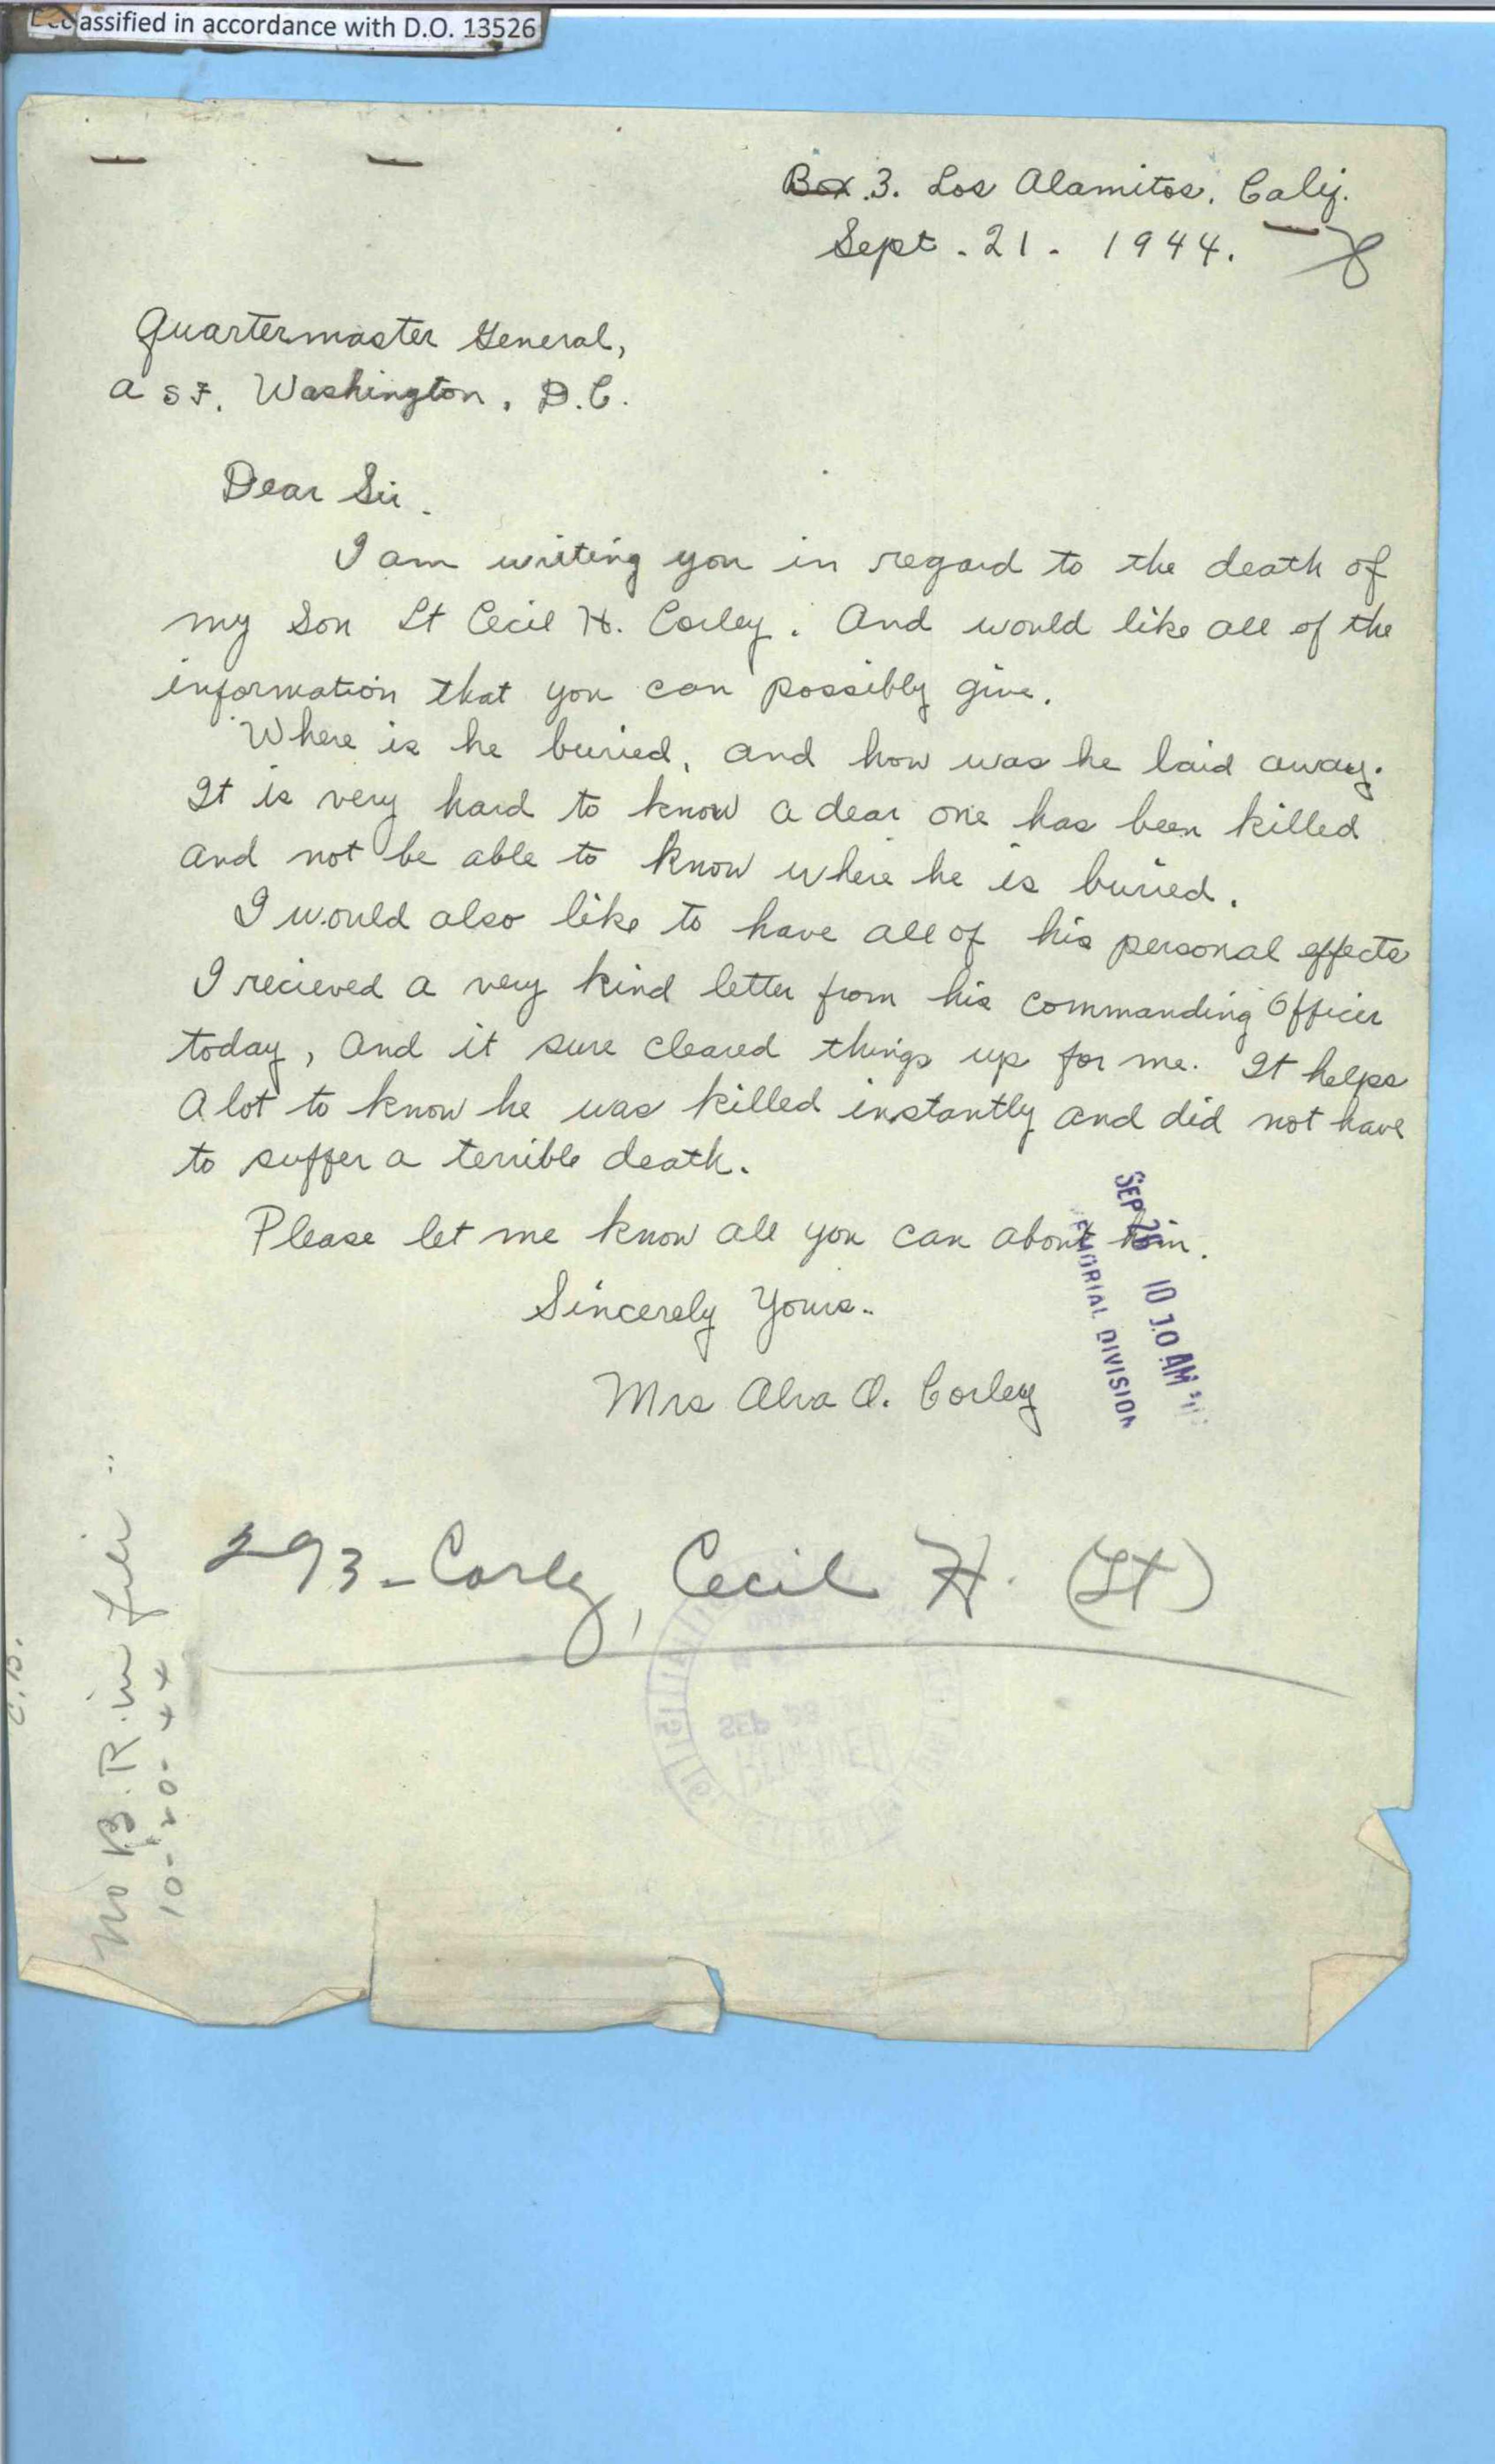 Declassified in accordance with D.O. 13526
Box 3. Los Alamitos, Calif.
Sept. 21. 1944.
Quartermaster General,
A S F, Washington, D.C.
Dear Sir.
I am writing you in regard to the death of
my Son Lt Cecil H. Corley. And would like all of the
information that you can possibly give.
Where is he buried, and how was he laid away.
It is very hard to know a dear one has been killed
and not be able to know where he is buried.
I would also like to have all of his personal effects
I recieved a very kind letter from his commanding Officer
today, and it sure cleared things up for me. It helps
a lot to know he was killed instantly and did not have
to suffer a terrible death.
Please let me know all you can about him.
Sincerely Yours..
Mrs Alva O. Corley
SEP 26 10 10 AM
MEMORIAL DIVISION
293-Corley, Cecil H. (Lt)
No B.R. in file
10-20-44
SEP 28